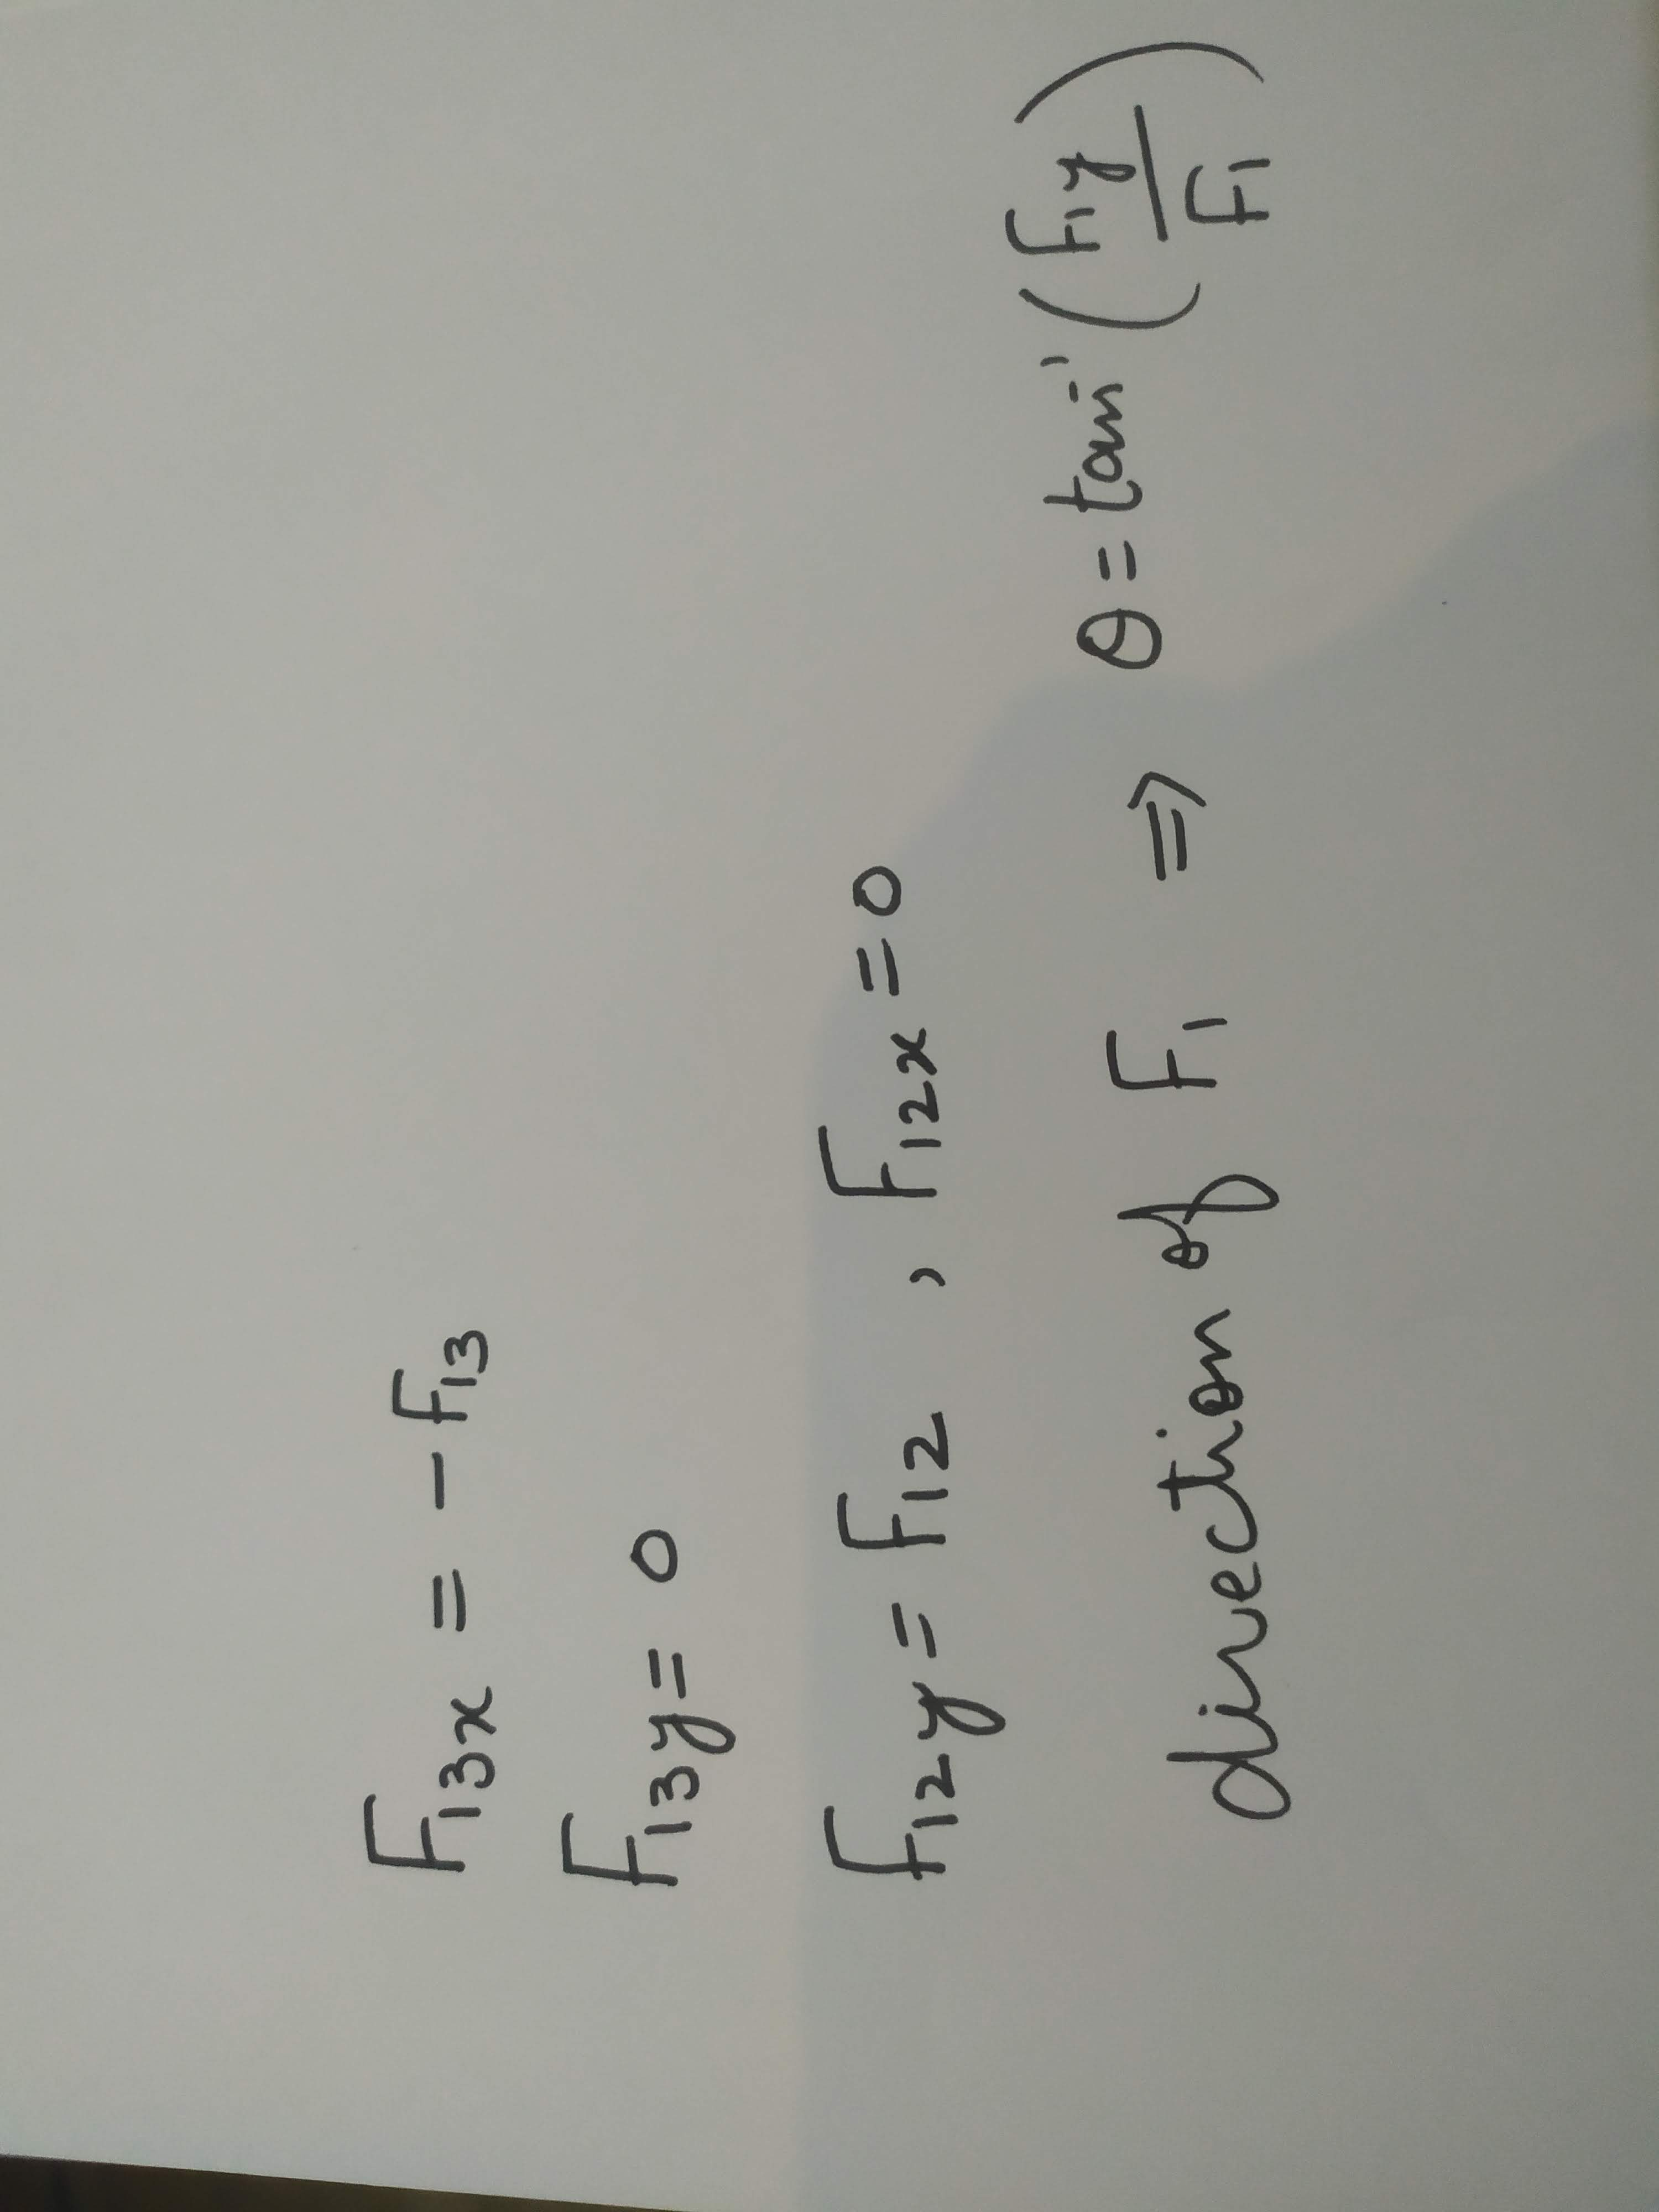 F13x = - F13
F13y = 0
F12y = F12 , F12x = 0
direction of F1 ⇒ θ = tan⁻¹ (F1y / F1)